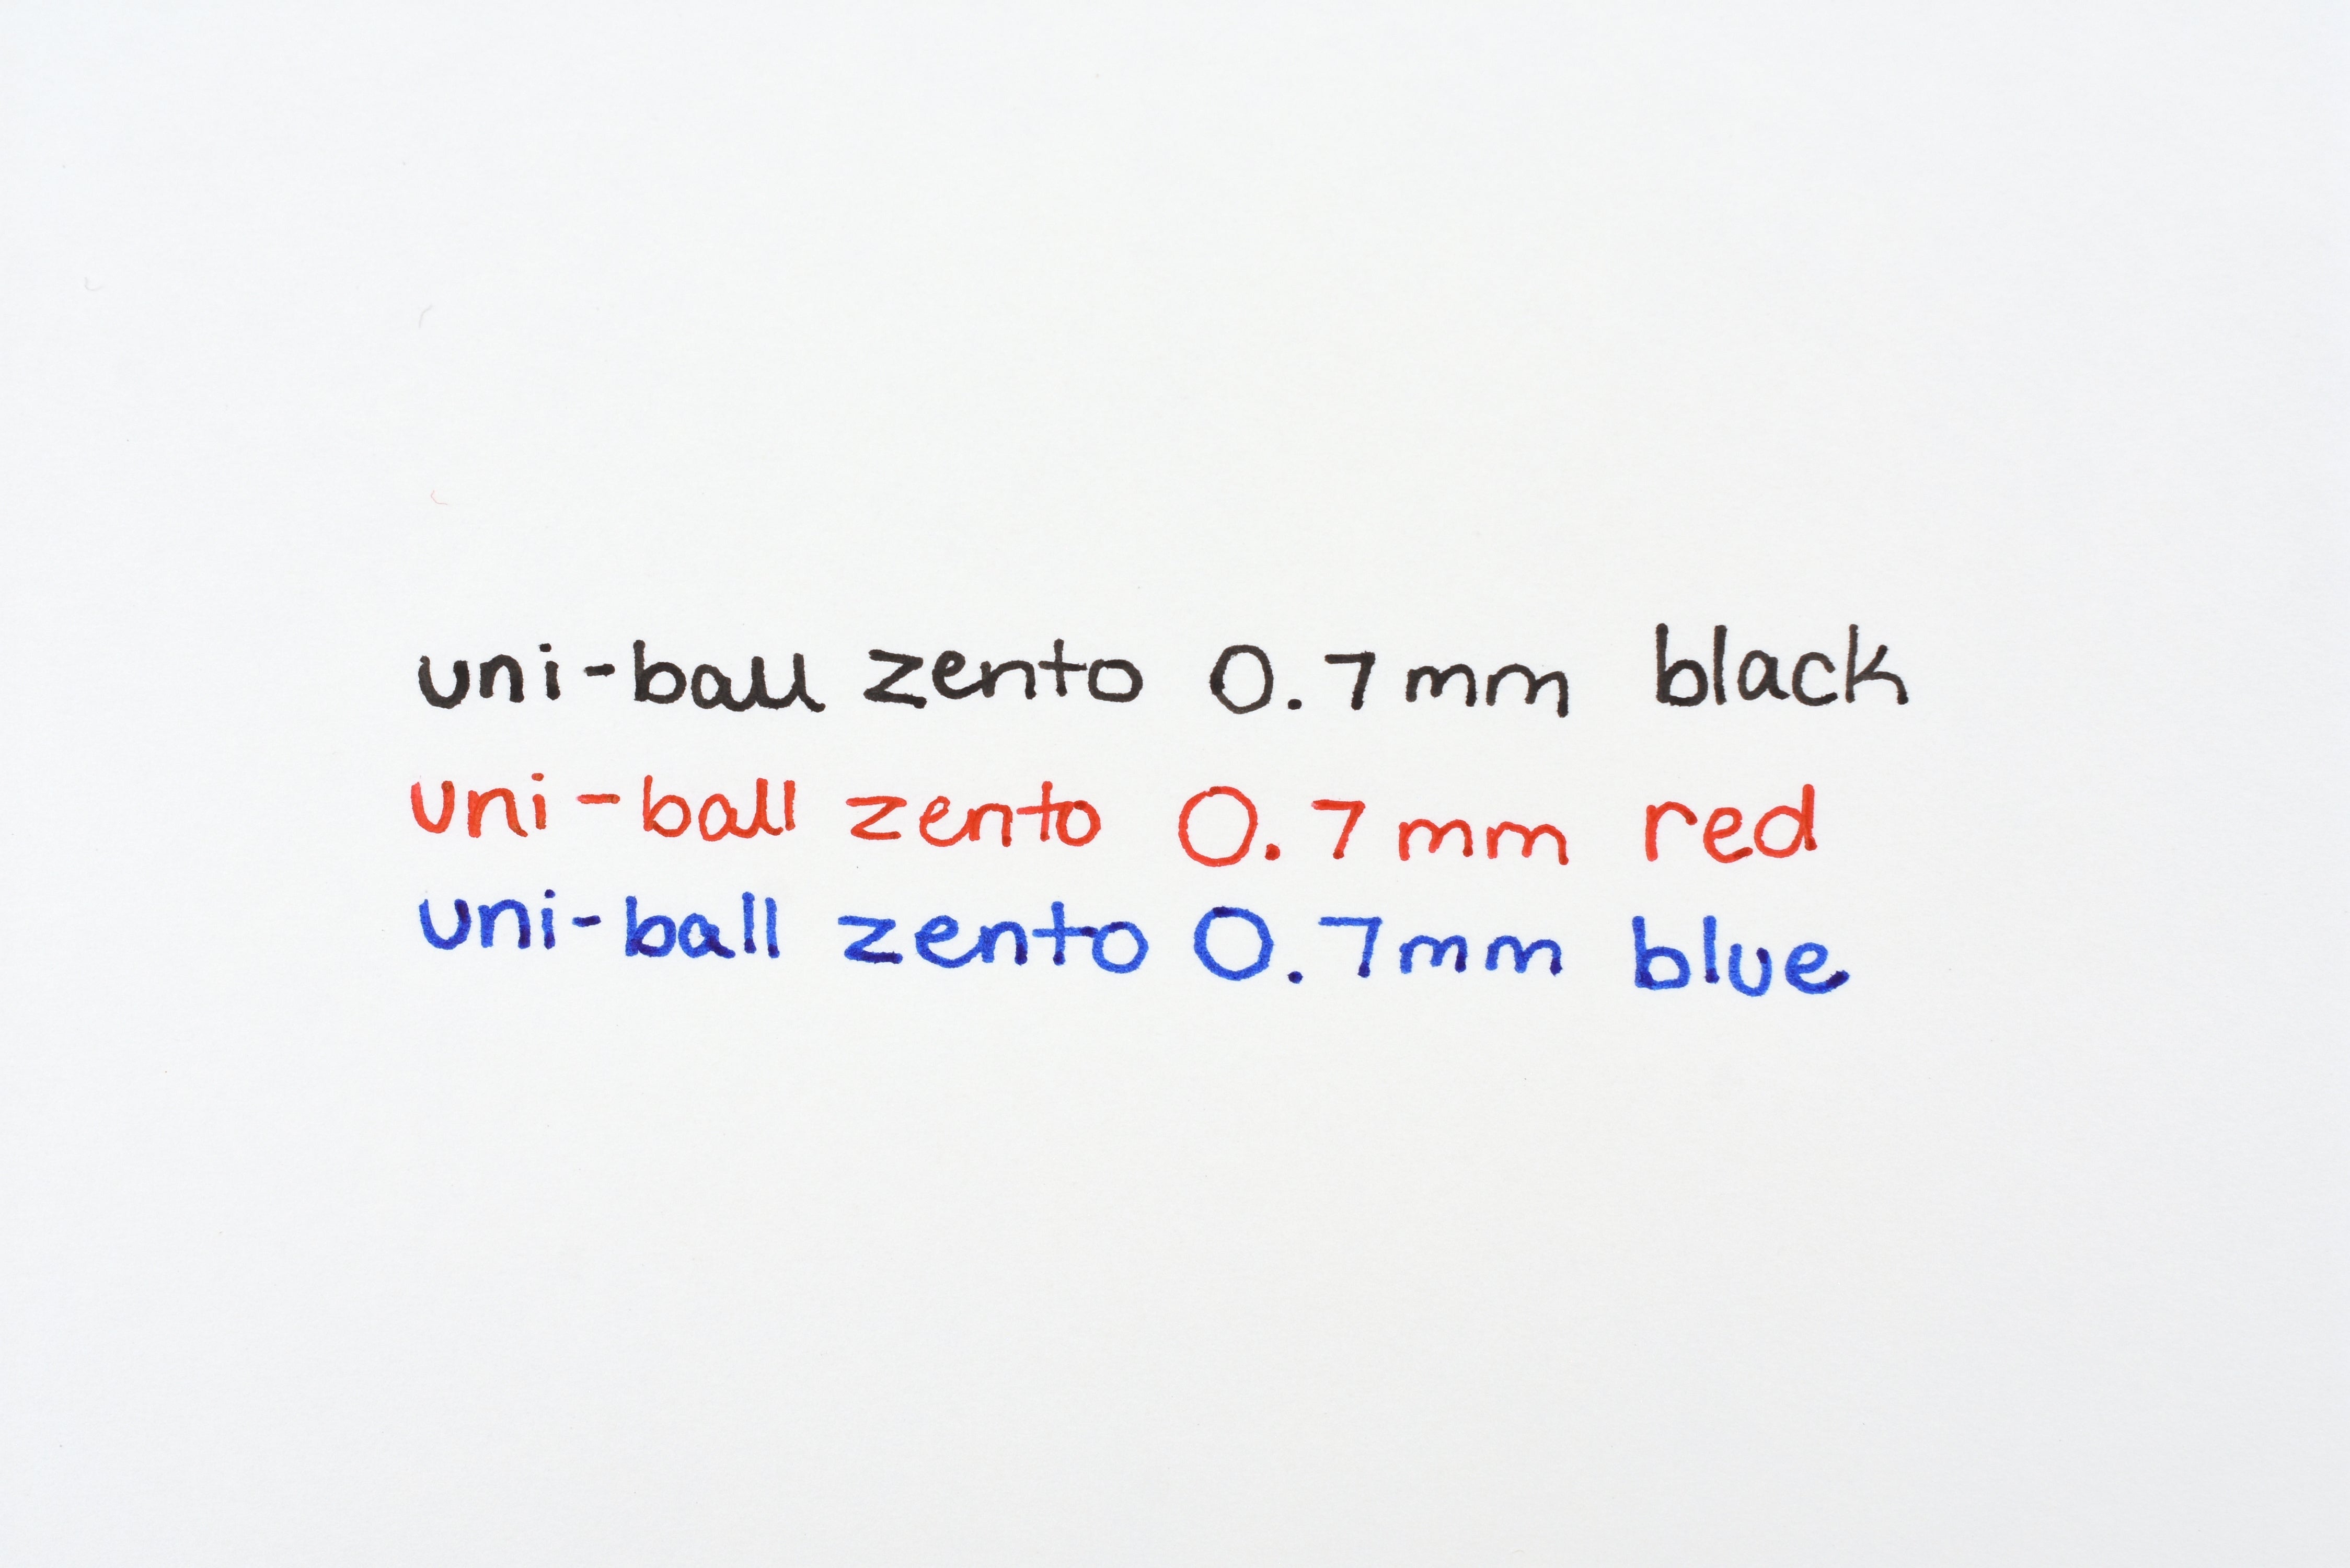 uni-ball zento 0.7mm black
uni-ball zento 0.7mm red
uni-ball zento 0.7mm blue